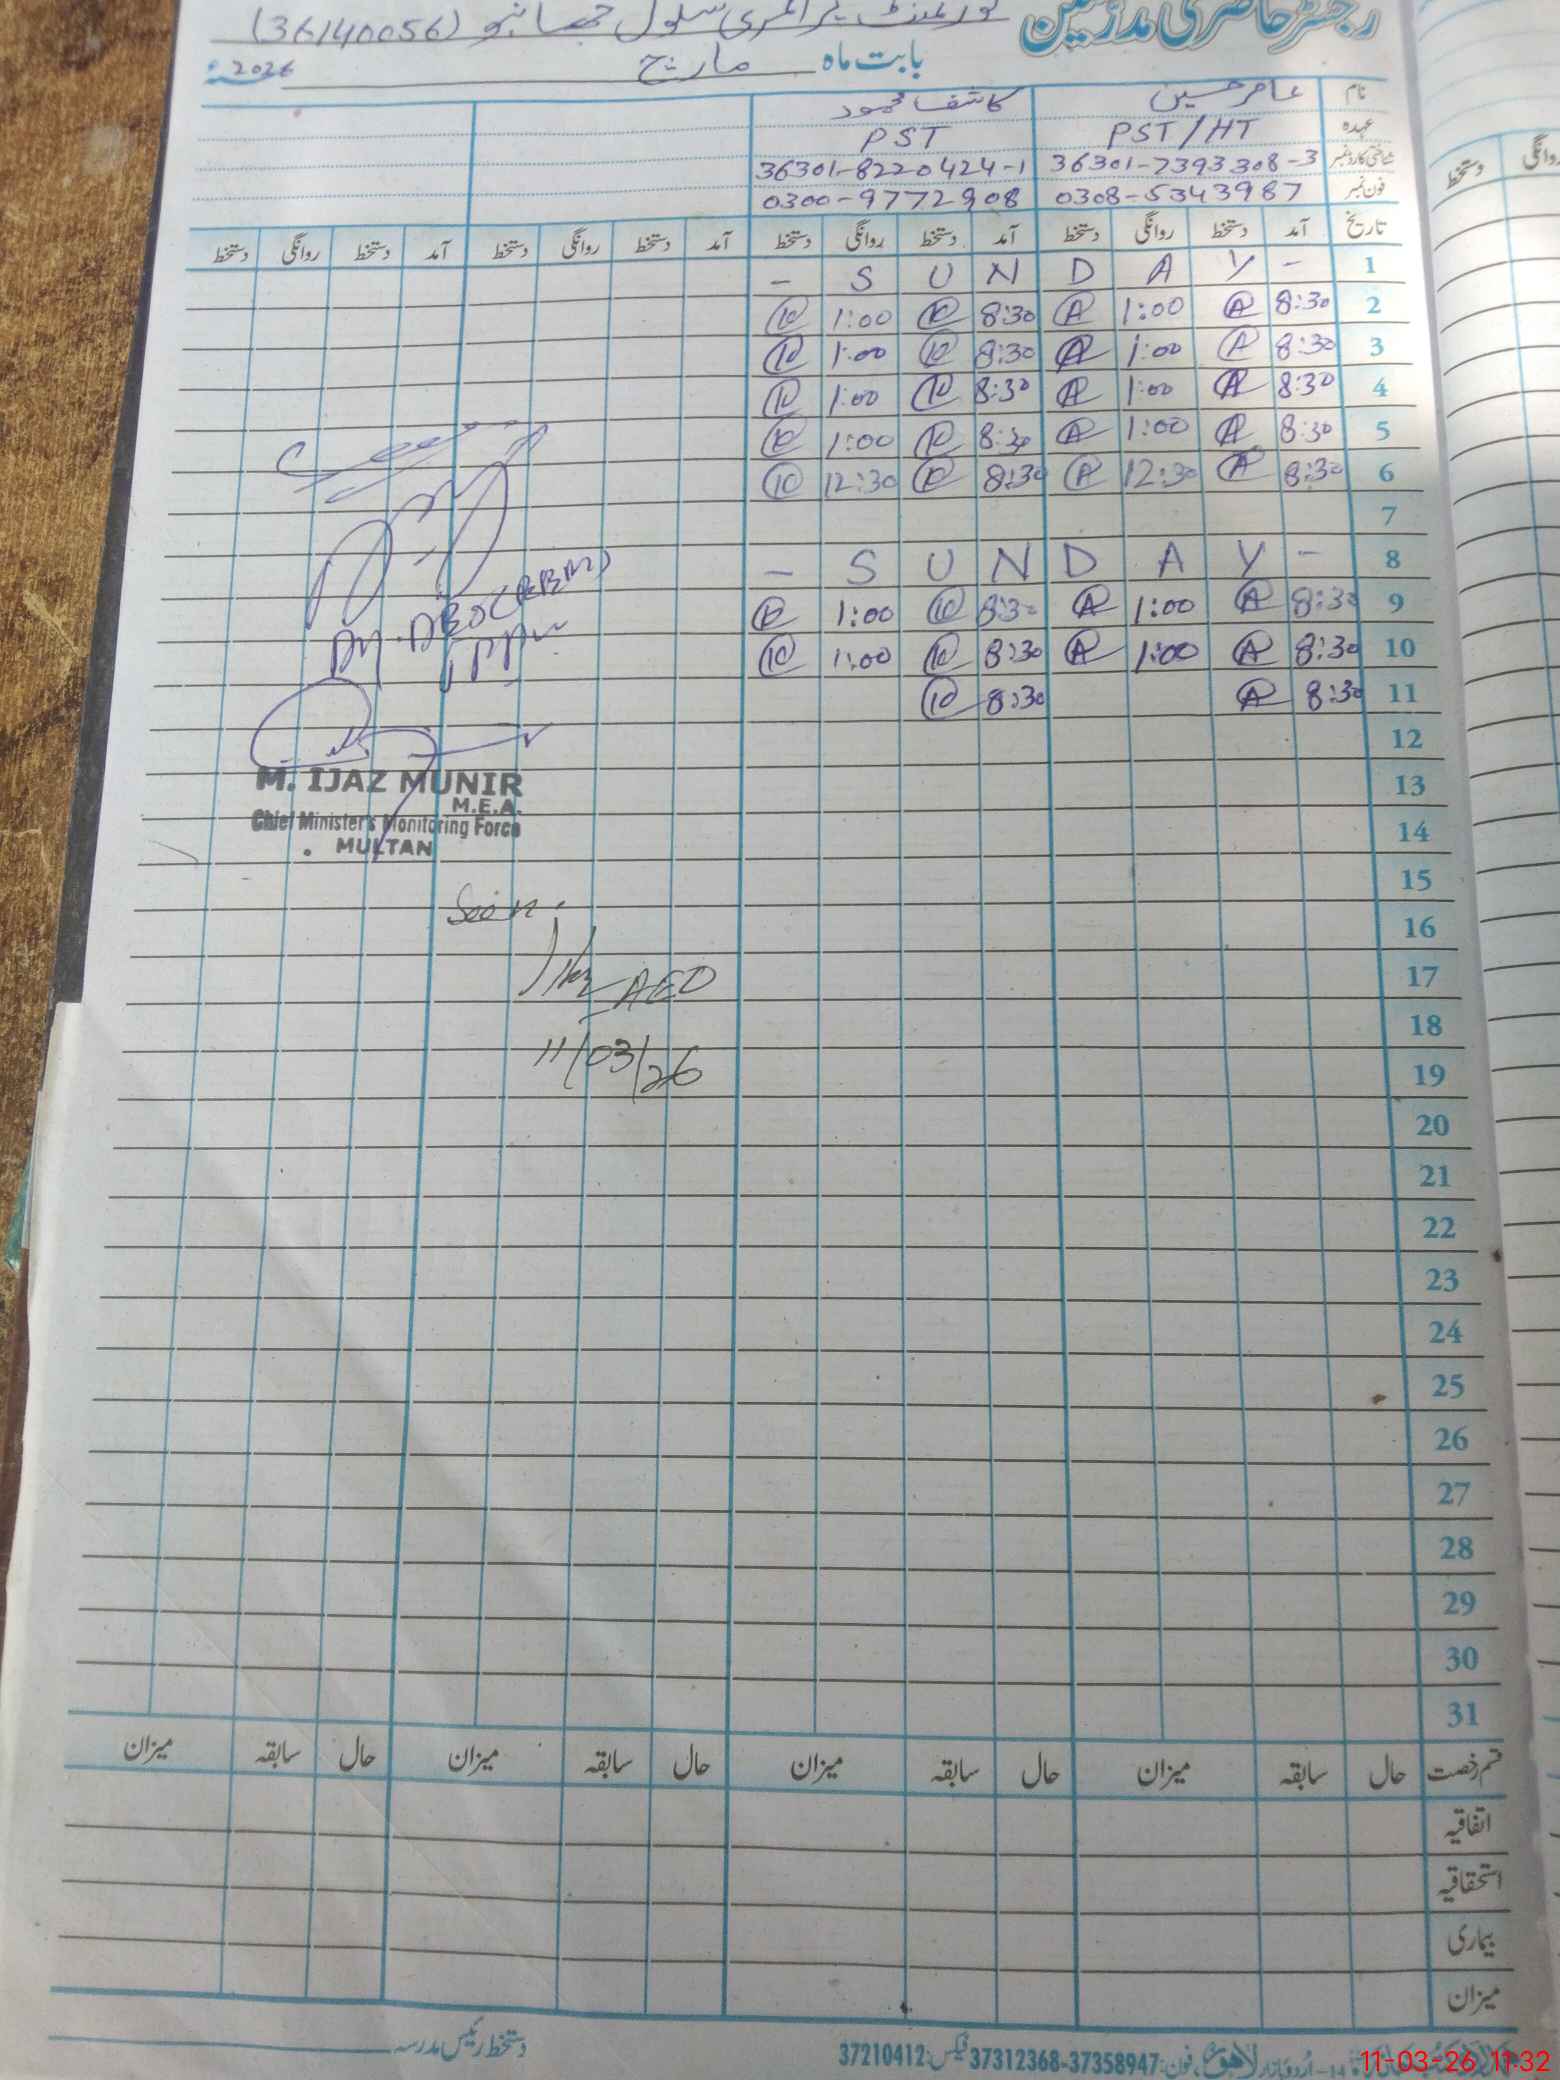 رجسٹر حاضری مدرسین
گورنمنٹ پرائمری سکول (36140056)
بابت ماہ مارچ 2026ء
نام عامر حسین کاشف محمود
عہدہ PST/HT PST
شناختی کارڈ نمبر 36301-7393308-3 36301-8220424-1
فون نمبر 0308-5343987 0300-9772908
تاریخ آمد دستخط روانگی دستخط آمد دستخط روانگی دستخط آمد دستخط روانگی دستخط آمد دستخط روانگی دستخط
1 - S U N D A Y -
2 8:30 A 1:00 A 8:30 1:00
3 8:30 A 1:00 A 8:30 1:00
4 8:30 A 1:00 A 8:30 1:00
5 8:30 A 1:00 A 8:30 1:00
6 8:30 A 12:30 A 8:30 12:30
7
8 - S U N D A Y -
9 8:30 A 1:00 A 8:30 1:00
10 8:30 A 1:00 A 8:30 1:00
11 8:30 A 8:30
12
13
14
15
16
17
18
19
20
21
22
23
24
25
26
27
28
29
30
31
M. IJAZ MUNIR
M.E.A.
Chief Minister's Monitoring Force
MULTAN
Seen
AEO
11/03/26
قسم رخصت حال سابقہ میزان حال سابقہ میزان حال سابقہ میزان حال سابقہ میزان
اتفاقیہ
استحقاقیہ
بیماری
میزان
دستخط رئیس مدرسہ
اُردو بازار لاہور، فون: 37358947-37312368 فیکس: 37210412
11-03-26 11:32
روانگی دستخط